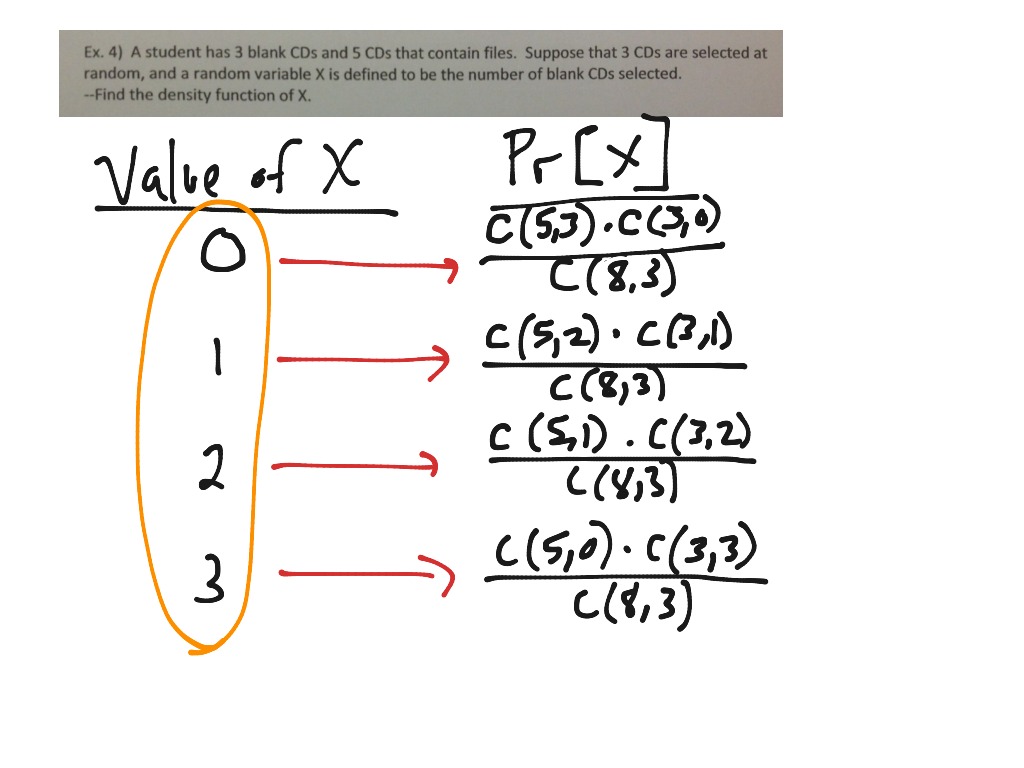 Ex. 4) A student has 3 blank CDs and 5 CDs that contain files. Suppose that 3 CDs are selected at
random, and a random variable X is defined to be the number of blank CDs selected.
--Find the density function of X.
Value of X Pr[X]
0 C(5,3)·C(3,0)
C(8,3)
1 C(5,2)·C(3,1)
C(8,3)
2 C(5,1)·C(3,2)
C(8,3)
3 C(5,0)·C(3,3)
C(8,3)